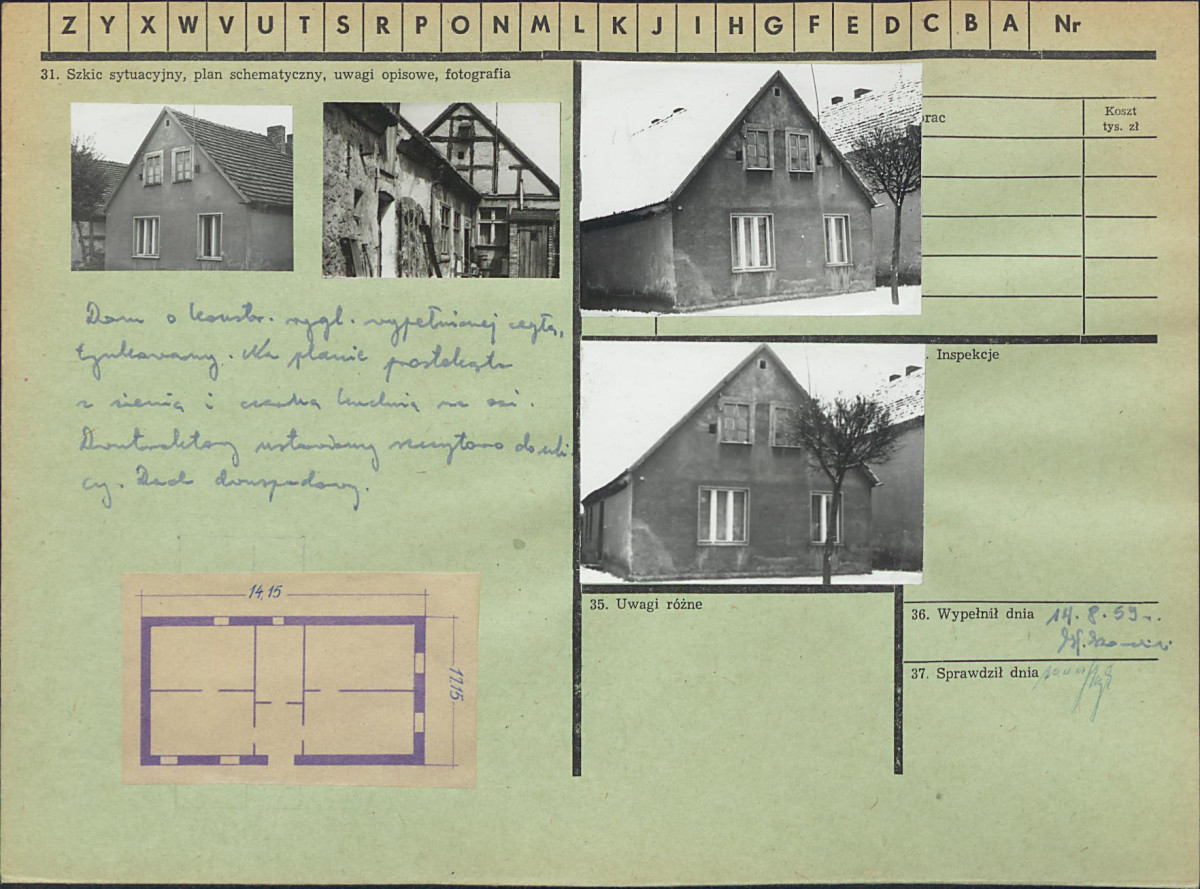 Z Y X W V U T S R P O N M L K J I H G F E D C B A Nr
31. Szkic sytuacyjny, plan schematyczny, uwagi opisowe, fotografia
rac
Koszt
tys. zł
Dom o konstr. rygl. wypełnionej cegłą,
tynkowany. Na planie prostokąta
z sienią i czarną kuchnią na osi.
Dwutraktowy ustawiony szczytowo do uli
cy. Dach dwuspadowy.
. Inspekcje
14,15
11,15
35. Uwagi różne
36. Wypełnił dnia 14.8.59 r.
37. Sprawdził dnia